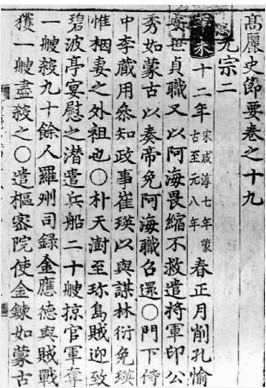 高麗史節要卷之十九
元宗二
未十二年宋咸淳七年蒙古至元八年春正月削孔愉
安世貞職又以阿海畏縮不救遣將軍印公
秀如蒙古以奏帝免阿海職召還○門下侍
中李藏用叅知政事崔瑛以與謀林衍免瑛
惟裀妻之外祖也○朴天澍至珎島賊迎致
碧波亭宴慰之潜遣兵船二十艘掠官軍奪
一艘殺九十餘人羅州司錄金應德與賊戰
獲一艘盡殺之○遣樞密院使金鍊如蒙古